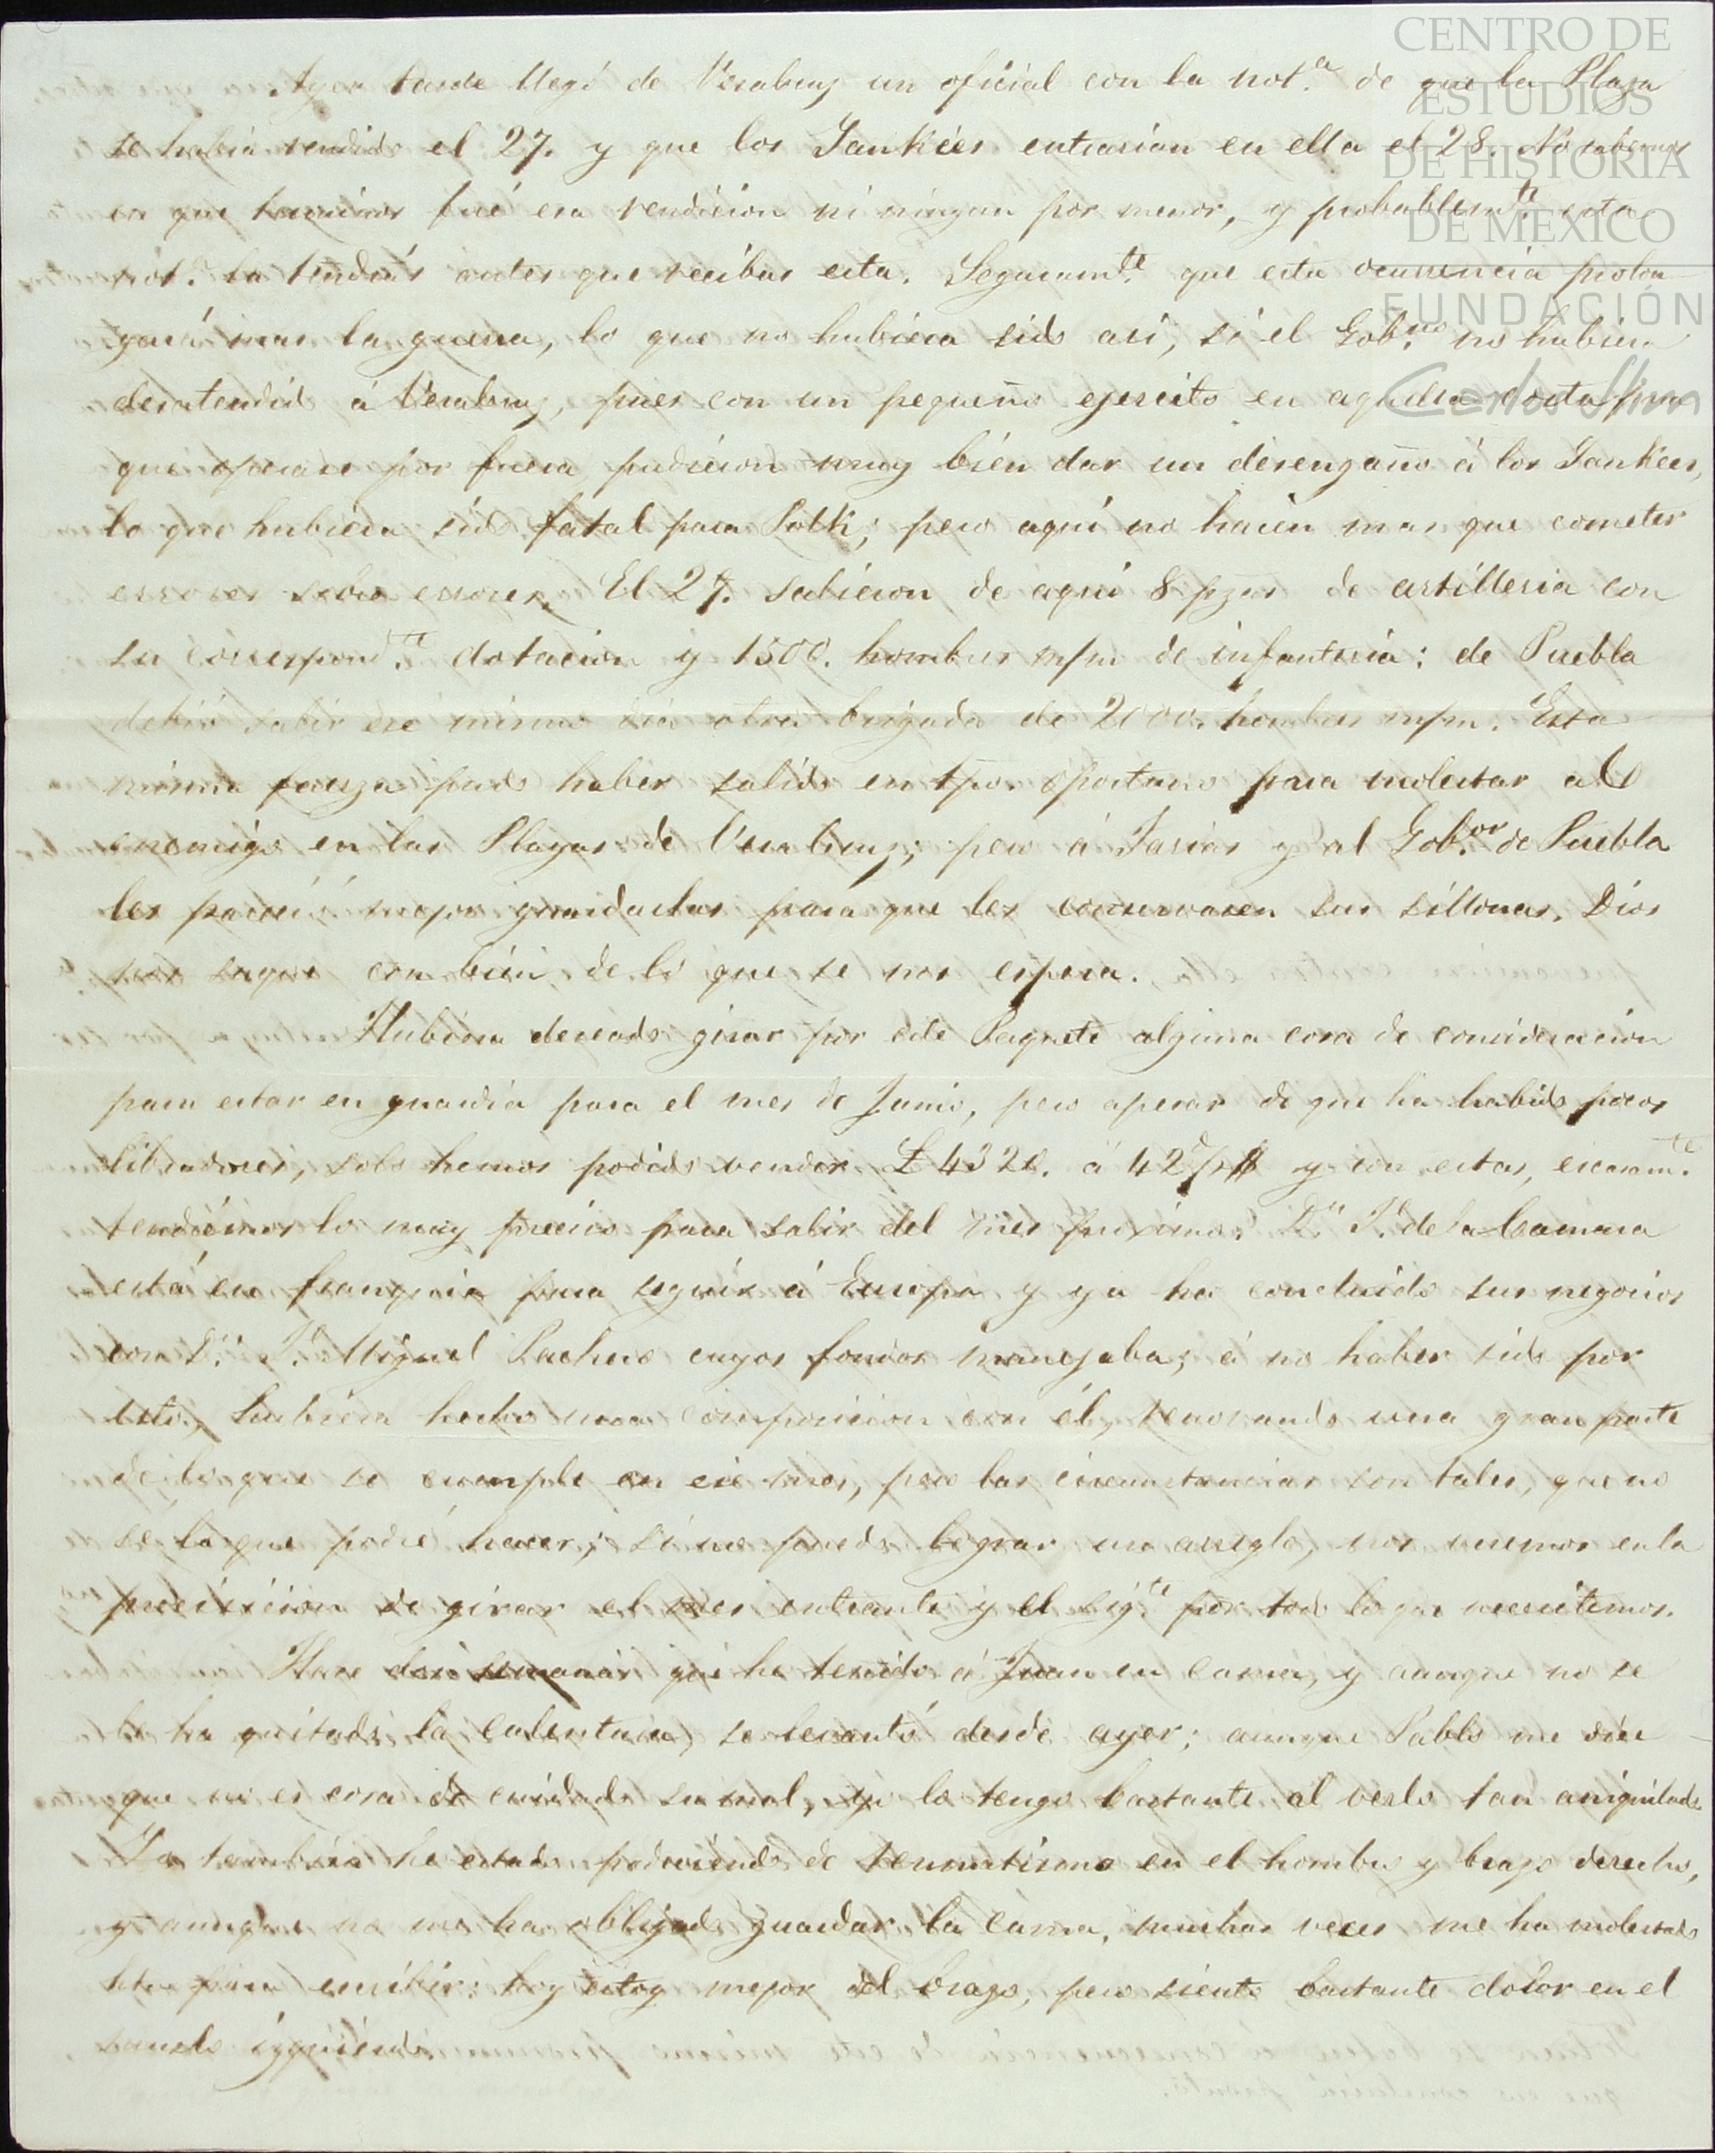 CENTRO DE
ESTUDIOS
DE HISTORIA
DE MÉXICO
FUNDACIÓN
Carlos Slim
Ayer tarde llegó de Veracruz un oficial con la not.ª de que la Plaza
se habia rendido el 27. y que los Yankées entrarian en ella el 28. No sabemos
en que terminos fué esa rendicion ni ningun por menor, y probablem.te esta
not.ª la tendrás antes que recibas esta. Seguram.te que esta ocurrencia prolon
gará mas la guerra, lo que no hubiera sido asi, si el Gob.no no hubiera
desatendido á Veracruz, pues con un pequeño ejercito en aquella costa para
que operase por fuera, pudieron muy bién dar un désengaño á los Yankées,
lo que hubiera sido fatal para Polk; pero aqui no hacén mas que cometer
errores sobre errores. El 27. salieron de aqui 8 pzas de artilleria con
su correspond.te dotacion y 1500. hombres m/m de infanteria: de Puebla
debió salir ese mismo dia otra brigada de 2000. hombres m/m. Esta
misma fuerza pudo haber salido en tpo. oportuno para molestar al
enemigo en las Playas de Veracruz; pero á Farias y al Gob.or de Puebla
les pareció mejor guardarlas para que les conservasen sus sillones. Dios
nos saque con bién de lo que se nos espera.
Hubiera deseado girar por este Paquete alguna cosa de consideracion
para estar en guardia para el mes de Junio, pero apesar de que ha habido pocos
libradores, solo hemos podido vender £ 4320. á 42 d/p$ y con estas, escasam.te
tendrémos lo muy preciso para salir del mes proximo. D.n J.é de la Camara
está en franquia para seguir á Europa y ya ha concluido sus negocios
con D.n J.é Miguel Pacheco cuyos fondos manejaba; á no haber sido por
esto, hubiera hecho una composicion con él, renovando una gran parte
de lo que se cumple en ese mes, pero las circunstancias son tales, que no
sé lo que podré hacer; si no puedo lograr un arreglo, nos veremos en la
precisicion de girar el mes entrante y el sig.te por todo lo que necesitemos.
Hace dos semanas que he tenido á Juan en cama, y aunque no se
le ha quitado la calentura, se levantó desde ayer; aunque Pablo me dice
que no es cosa de cuidado su mal, yo lo tengo bastante al verlo tan aniquilado.
Yo tambien he estado padeciendo de reumatismo en el hombro y brazo derecho,
y aunque no me ha obligado guardar la cama, muchas veces me ha molestado
para escribir: hoy estoy mejor del brazo, pero siento bastante dolor en el
izquierdo.